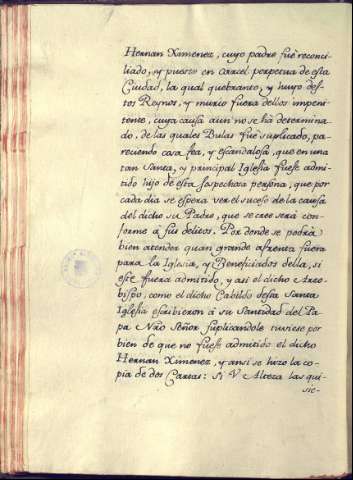 Hernan Ximenez, cuyo padre fuè reconci-
liado, y puesto en carcel perpetua de esta
Ciudad, la qual quebranto, y huyo des-
tos Reynos, y murio fuera dellos impeni-
tente, cuya causa aun no se há determina-
do, de las quales Bulas fuè suplicado, pa-
reciendo cosa fea, y escandalosa, que en una
tan Santa, y principal Iglesia fuese admi-
tido hijo de esta sospechosa persona, que por
cada dia se espera ver el suceso de la causa
del dicho su Padre, que se cree será con-
forme à sus delitos. Por donde se podrà
bien atender quan grande afrenta fuera
para la Iglesia, y Beneficiados della, si
este fuera admitido, y asi el dicho Arzo-
bispo, como el dicho Cabildo desta Santa
Iglesia escribieron à su Santidad del Pa-
pa Nr̃o Señor suplicandole tuviese por
bien de que no fuese admitido el dicho
Hernan Ximenez, y ansi se hizo la co-
pia de dos Cartas: Si V. Alteza las qui-
sie-